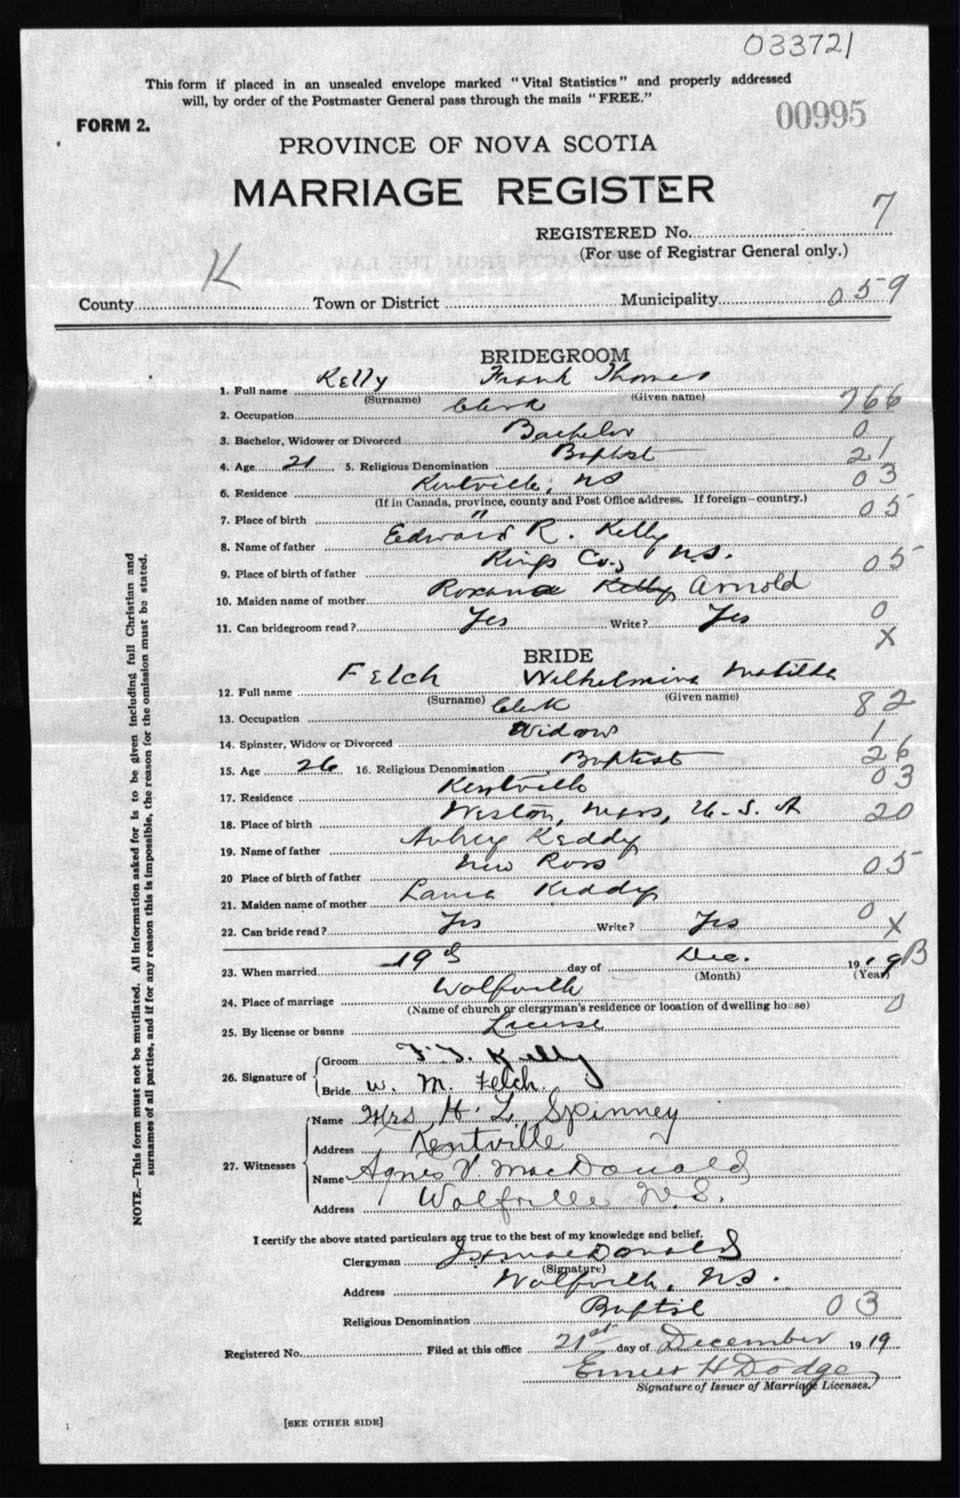 033721
This form if placed in an unsealed envelope marked "Vital Statistics" and properly addressed
will, by order of the Postmaster General pass through the mails "FREE."
00995
FORM 2.
PROVINCE OF NOVA SCOTIA
MARRIAGE REGISTER
REGISTERED No. 7
(For use of Registrar General only.)
County K Town or District Municipality 059
BRIDEGROOM
1. Full name Kelly Frank Thomas
(Surname) (Given name)
2. Occupation Clerk 766
3. Bachelor, Widower or Divorced Bachelor 0
4. Age 21 5. Religious Denomination Baptist 21
6. Residence Kentville, NS 03
(If in Canada, province, county and Post Office address. If foreign—country.)
7. Place of birth " 05
8. Name of father Edward R. Kelly
9. Place of birth of father Kings Co., N.S. 05
10. Maiden name of mother Roxana Kelly Arnold
11. Can bridegroom read? Yes Write? Yes 0
X
BRIDE
12. Full name Felch Wilhelmina Matilda
(Surname) (Given name)
13. Occupation Clerk 82
14. Spinster, Widow or Divorced Widow 1
15. Age 26 16. Religious Denomination Baptist 26
17. Residence Kentville 03
18. Place of birth Weston, Mass, U.S.A 20
19. Name of father Aubrey Keddy
20 Place of birth of father New Ross 05
21. Maiden name of mother Laura Keddy
22. Can bride read? Yes Write? Yes 0 X
23. When married 19 day of Dec. 1919 B
(Month) (Year)
24. Place of marriage Wolfville 0
(Name of church or clergyman's residence or location of dwelling house)
25. By license or banns License
26. Signature of Groom F. T. Kelly
Bride W. M. Felch
27. Witnesses Name Mrs H. L. Spinney
Address Kentville
Name Agnes V. MacDonald
Address Wolfville N.S.
I certify the above stated particulars are true to the best of my knowledge and belief.
Clergyman MacDonald
(Signature)
Address Wolfville, N.S.
Religious Denomination Baptist 03
Registered No. Filed at this office 21st day of December 1919
Ernest H Dodge
Signature of Issuer of Marriage Licenses.
[SEE OTHER SIDE]
NOTE.—This form must not be mutilated. All information asked for is to be given including full Christian and
surnames of all parties, and if for any reason this is impossible, the reason for the omission must be stated.